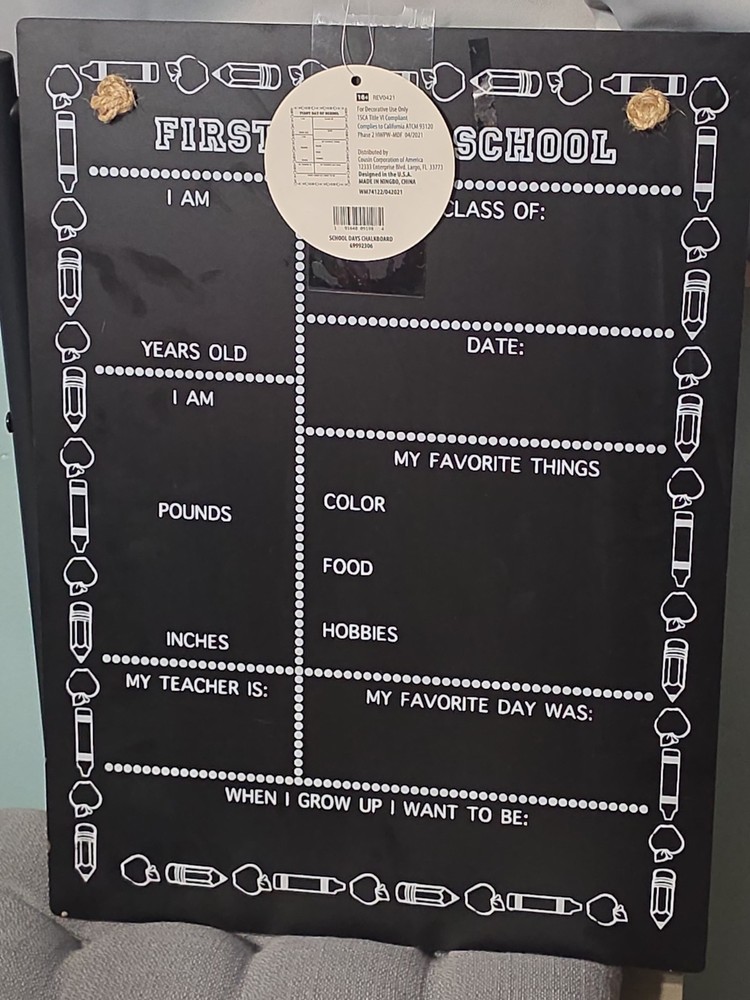 FIRST
SCHOOL
18+ REV0421
For Decorative Use Only
TSCA Title VI Compliant
Complies to California ATCM 93120
Phase 2 HWPW-MDF 04/2021
Distributed by
Cousin Corporation of America
12333 Enterprise Blvd. Largo, FL 33773
Designed in the U.S.A.
MADE IN NINGBO, CHINA
WM74122/042021
SCHOOL DAYS CHALKBOARD
69992306
I AM
YEARS OLD
I AM
POUNDS
INCHES
MY TEACHER IS:
CLASS OF:
DATE:
MY FAVORITE THINGS
COLOR
FOOD
HOBBIES
MY FAVORITE DAY WAS:
WHEN I GROW UP I WANT TO BE: